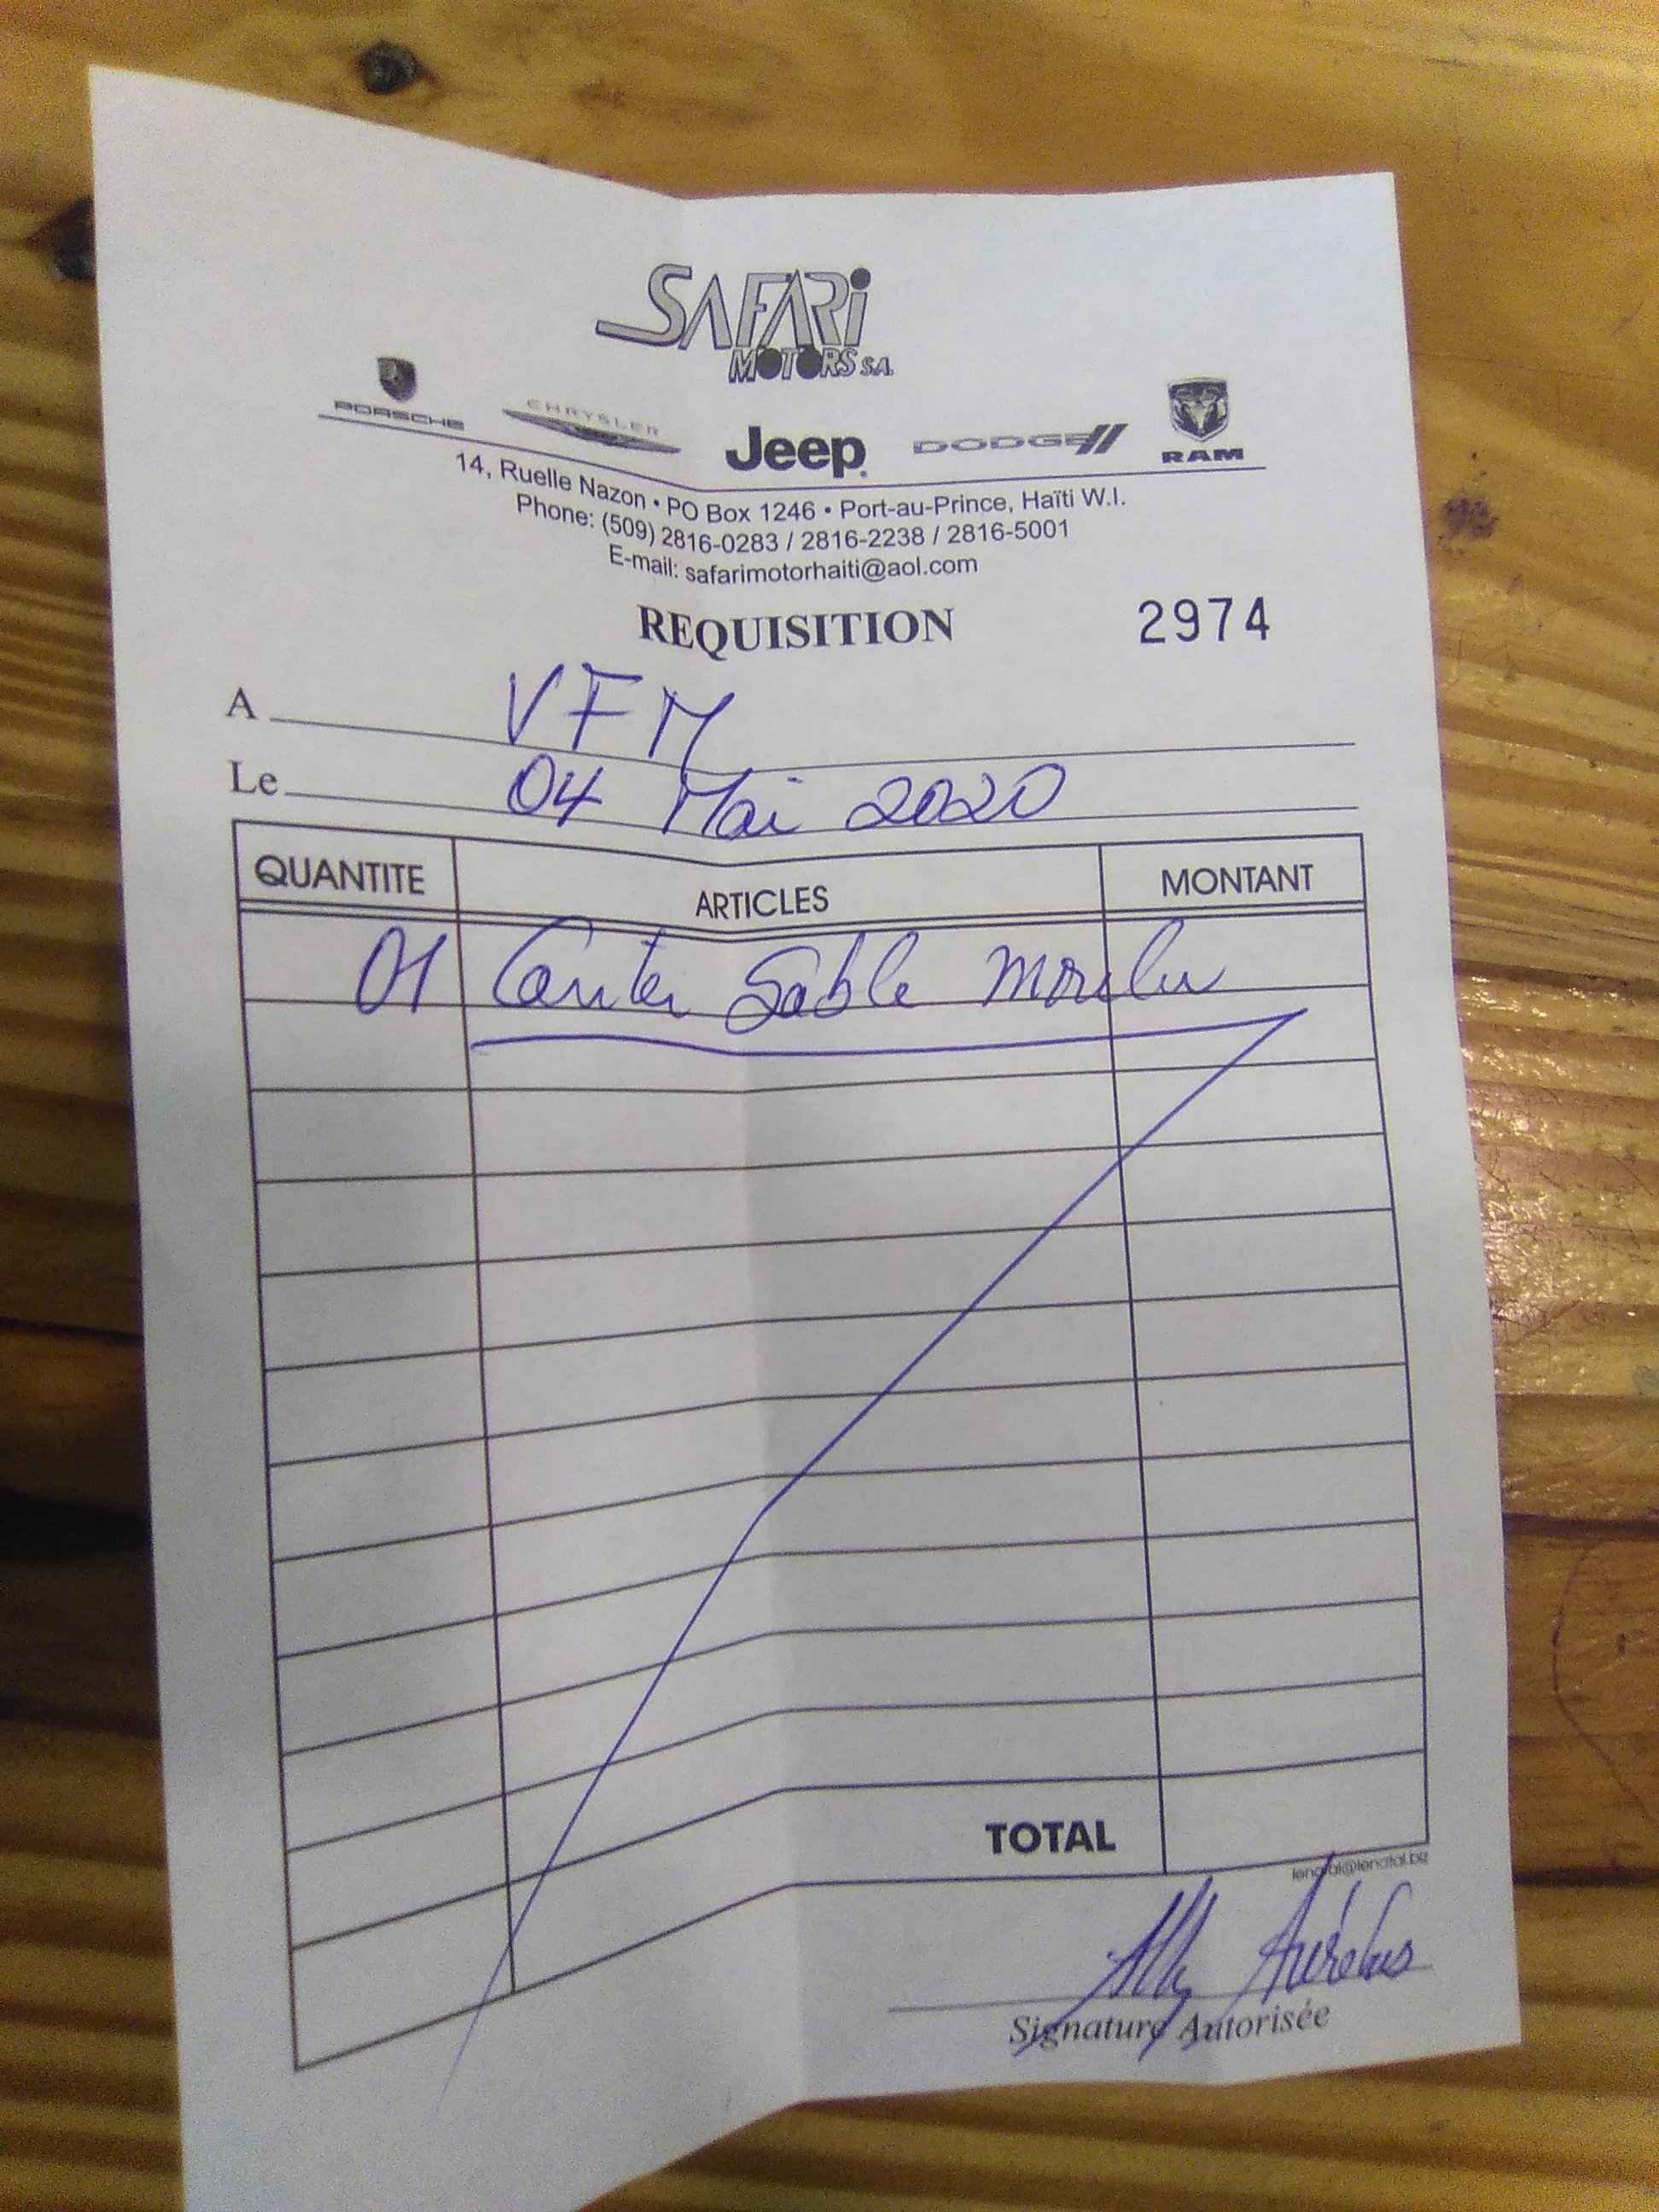 SAFARI
MOTORS S.A.
PORSCHE CHRYSLER Jeep DODGE RAM
14, Ruelle Nazon • PO Box 1246 • Port-au-Prince, Haïti W.I.
Phone: (509) 2816-0283 / 2816-2238 / 2816-5001
E-mail: safarimotorhaiti@aol.com
REQUISITION 2974
A VFM
Le 04 Mai 2020
QUANTITE ARTICLES MONTANT
01 Canter Sable Moulu
TOTAL
Aurélus
Signature Autorisée